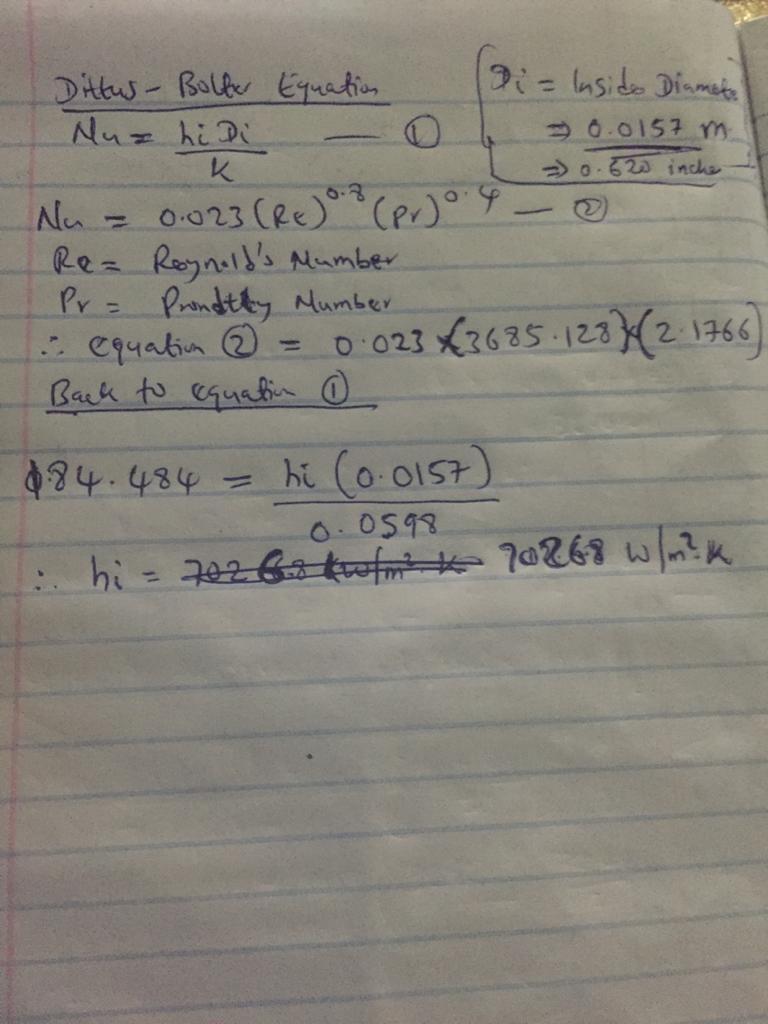 Dittus - Bolter Equation
Nu = hi Di / K — ①
Di = Inside Diameter
⇒ 0.0157 m
⇒ 0.620 inche
Nu = 0.023 (Re)^0.8 (Pr)^0.4 — ②
Re = Reynold's Number
Pr = Number
∴ equation ② = 0.023 × (3685.128) × (2.1766)
Back to equation ①
184.484 = hi (0.0157) / 0.0598
∴ hi = 702.68 W/m².K